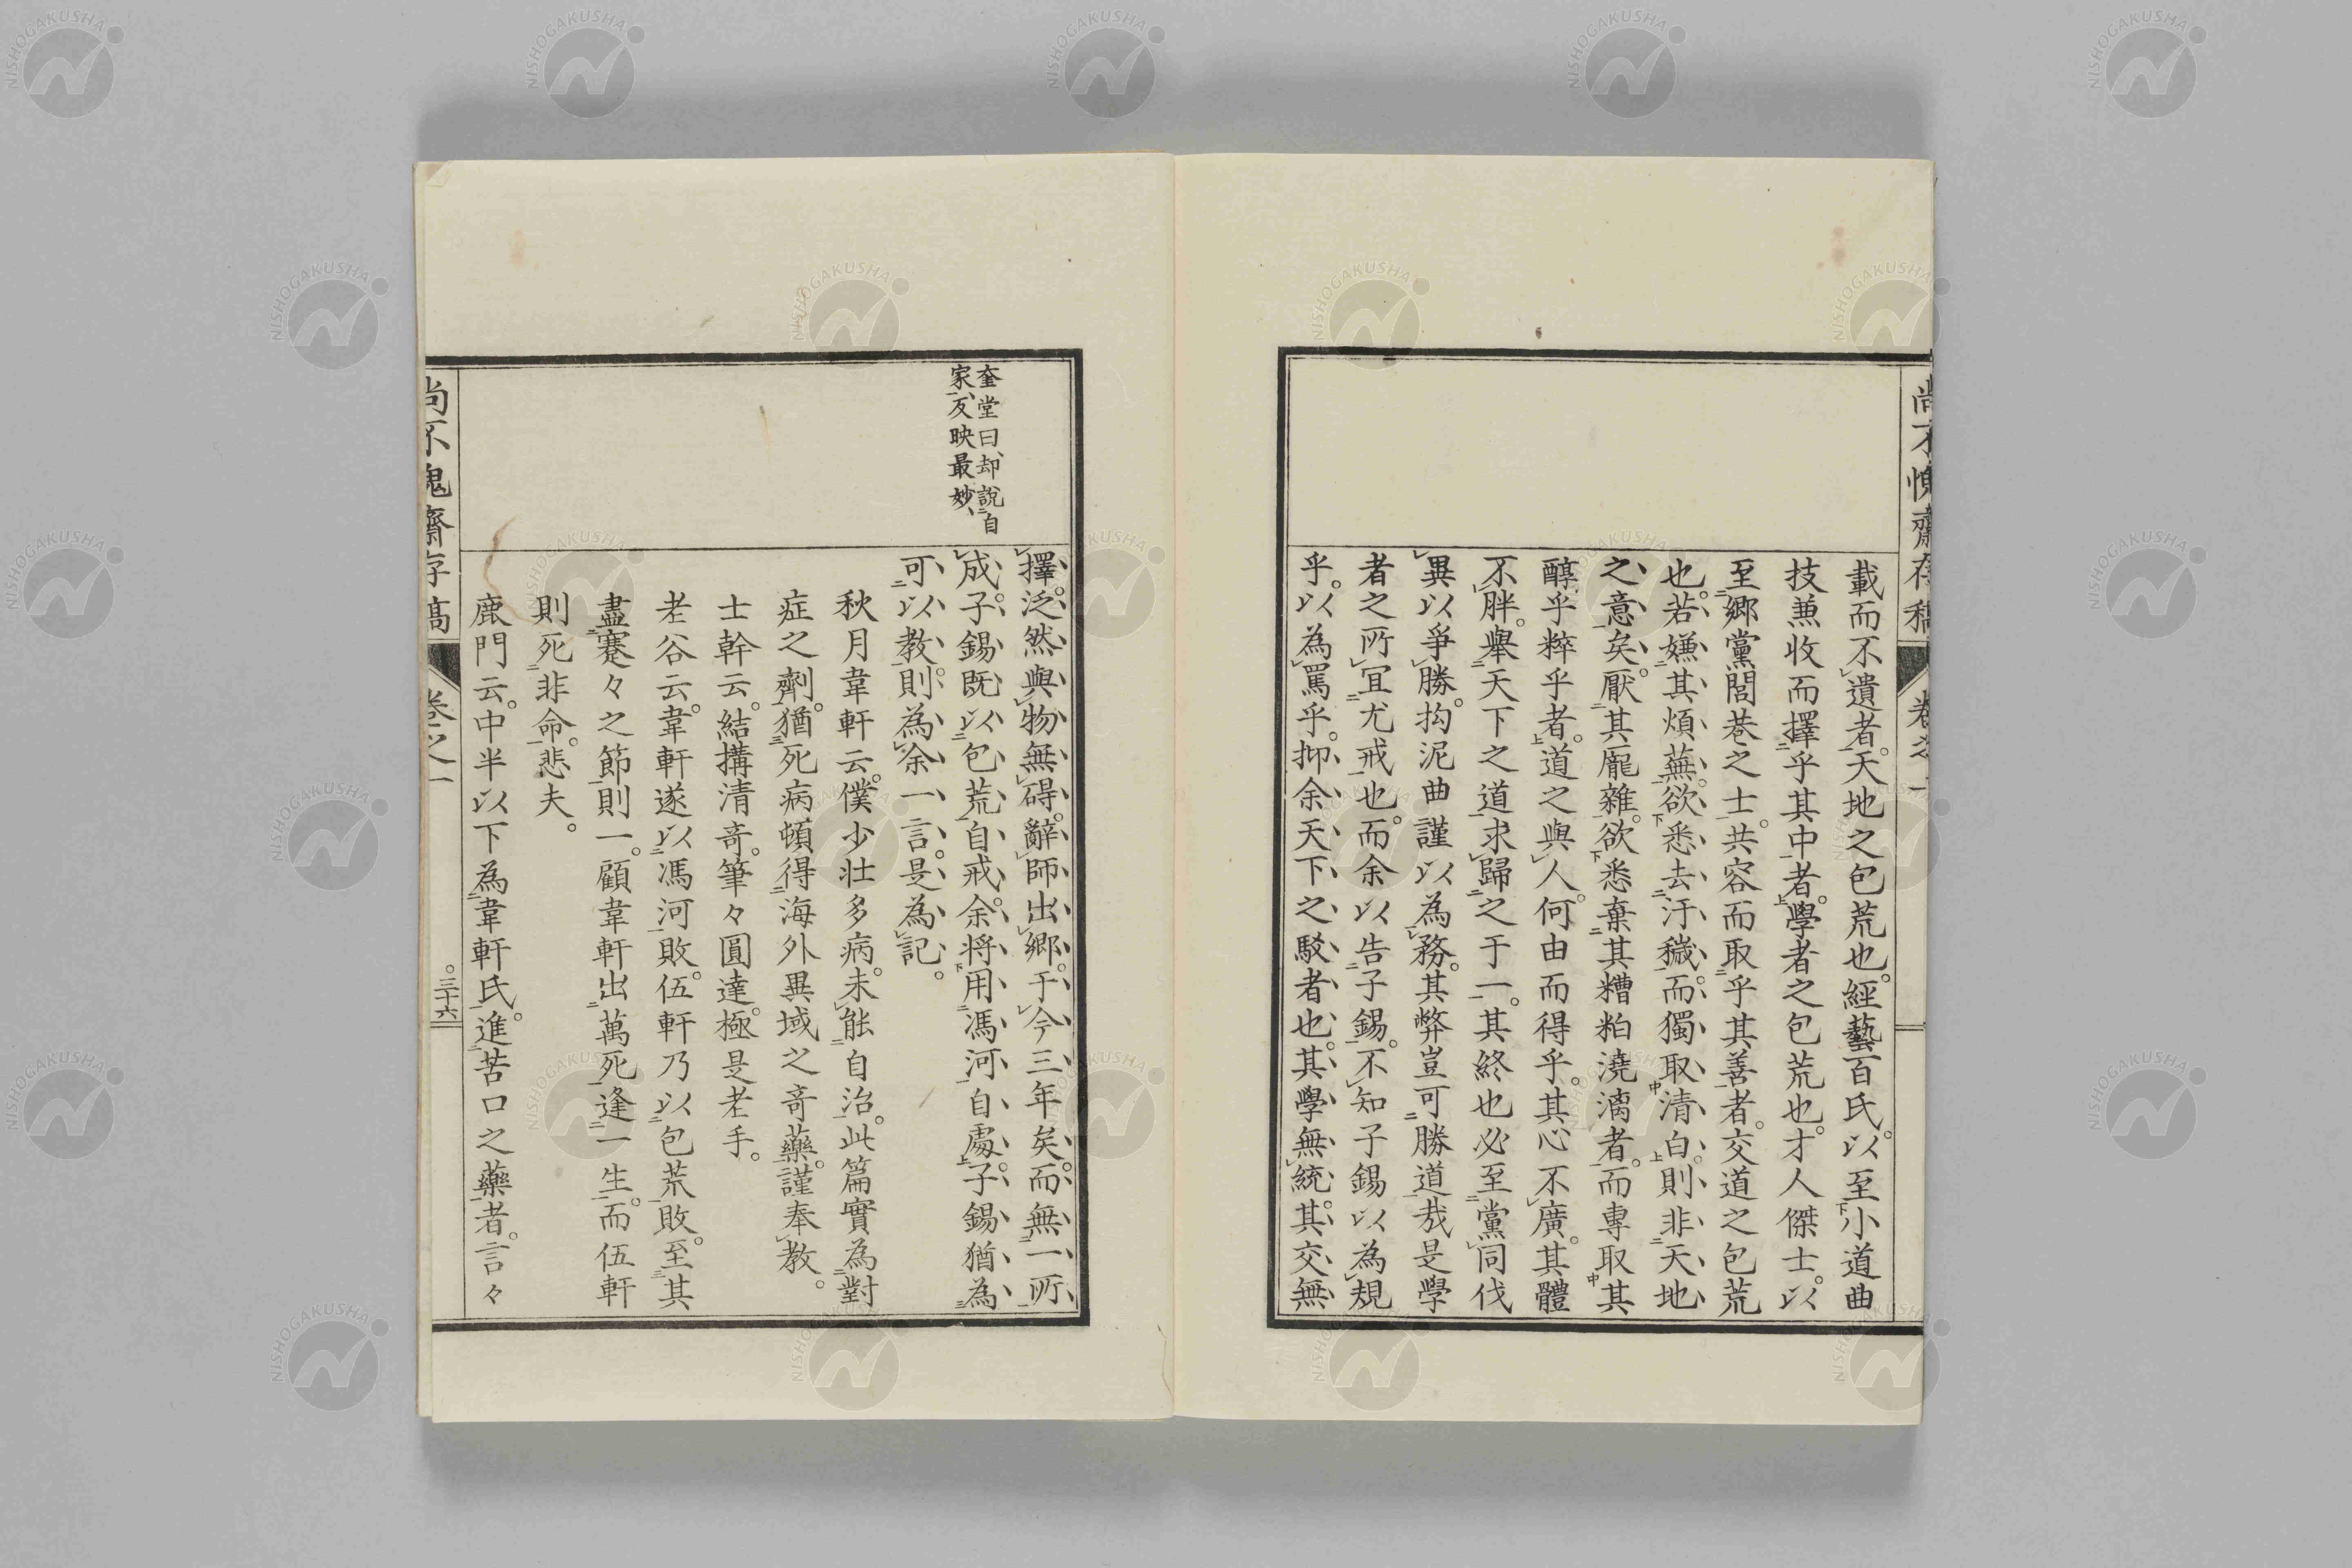 載而不遺者。天地之包荒也。經藝百氏。以至小道曲
技兼收而擇乎其中者。學者之包荒也。才人傑士。以
至鄉黨閭巷之士。共容而取乎其善者。交道之包荒
也。若嫌其煩蕪。欲悉去汙穢。而獨取清白。則非天地
之意矣。厭其龐雜。欲悉棄其糟粕澆漓者。而專取其
醇乎粹乎者。道之與人。何由而得乎。其心不廣。其體
不胖。舉天下之道求歸之于一。其終也必至黨同伐
異以爭勝。拘泥曲謹以為務。其弊豈可勝道哉是學
者之所宜尤戒也。而余以告子錫。不知子錫以為規
乎。以為罵乎。抑余天下之駁者也。其學無統。其交無
尚不愧齋存稿
卷之一
奎堂曰、却說自
家、反映最妙、
擇。泛然與物無碍。辭師出鄉。于今三年矣。而無一所
成。子錫既以包荒自戒。余將用馮河自處。子錫猶為
可以教。則為余一言。是為記。
秋月韋軒云。僕少壯多病。未能自治。此篇實為對
症之劑。猶死病頓得海外異域之奇藥。謹奉教。
士幹云。結搆清奇。筆々圓達。極是老手。
老谷云。韋軒遂以馮河敗。伍軒乃以包荒敗。至其
盡蹇々之節則一。顧韋軒出萬死逢一生。而伍軒
則死非命。悲夫。
鹿門云。中半以下為韋軒氏。進苦口之藥者。言々
尚不愧齋存稿
卷之一
○三十六
NISHOGAKUSHA